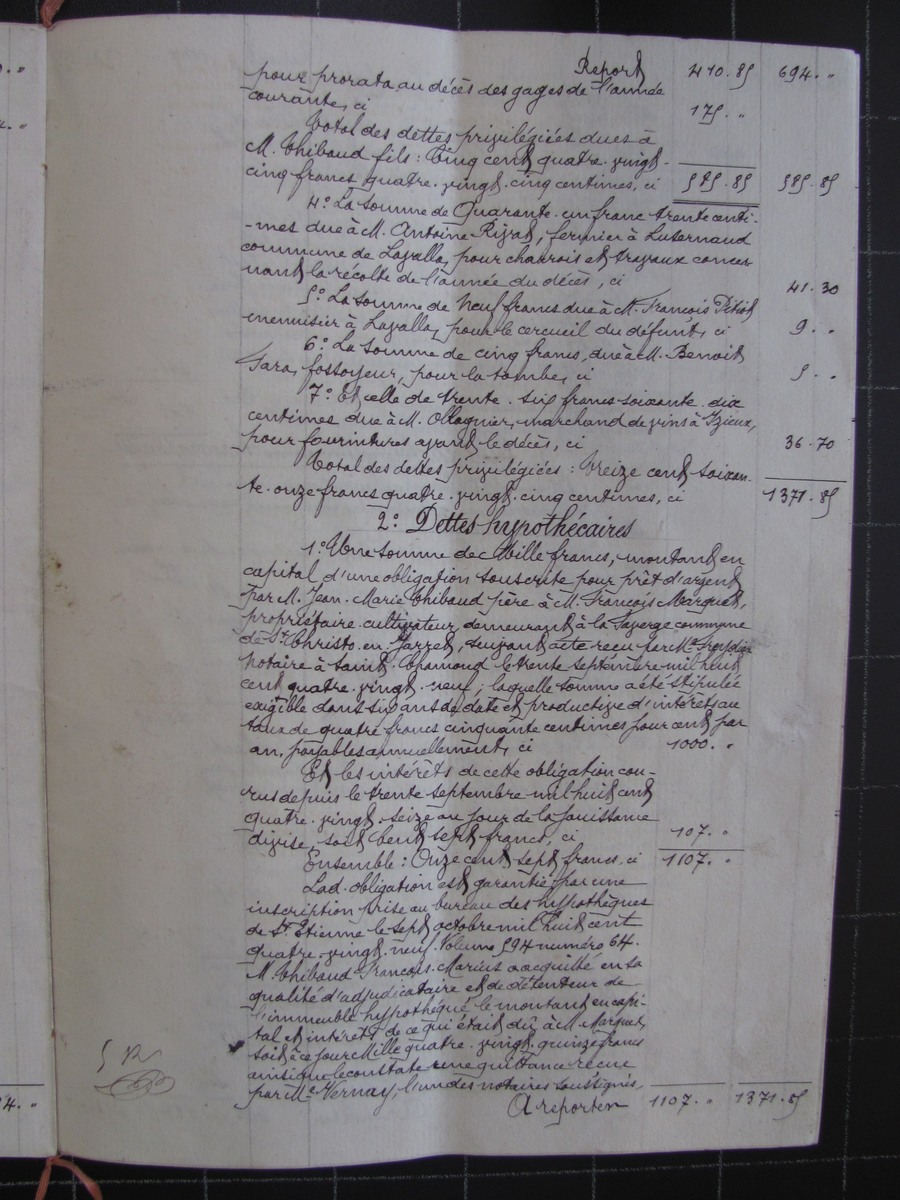 Report 410.85 694. "
pour prorata au décès des gages de l'année
courante, ci 175. "
Total des dettes privilégiées dues à
M. Thibaud fils : Cinq cent quatre-vingt-
cinq francs quatre-vingt-cinq centimes, ci 585.85 585.85
4° La somme de Quarante-un franc trente centi-
-mes due à M. Antoine Rivat, fermier à Luzernaud
commune de Lavalla, pour charrois et travaux concer-
nant la récolte de l'année du décès, ci 41.30
5° La somme de Neuf francs due à M. François Pitiot
menuisier à Lavalla, pour le cercueil du défunt, ci 9. "
6° La somme de cinq francs, due à M. Benoit
Fara, fossoyeur, pour la tombe, ci 5. "
7° Et celle de trente-six francs soixante-dix
centimes due à M. Ollagnier, marchand de vins à Izieux,
pour fournitures avant le décès, ci 36.70
Total des dettes privilégiées : Treize cent soixan-
te-onze francs quatre-vingt-cinq centimes, ci 1371.85
2° Dettes hypothécaires
1° Une somme de Mille francs, montant en
capital d'une obligation souscrite pour prêt d'argent
par M. Jean-Marie Thibaud père à M. François Marquet,
propriétaire-cultivateur, demeurant à la commune
de St Christo-en-Jarret, suivant acte reçu par Me
notaire à Saint-Chamond le trente septembre mil huit
cent quatre-vingt-neuf ; laquelle somme a été stipulée
exigible dans six ans de date et productive d'intérêts au
taux de quatre francs cinquante centimes pour cent par
an, payables annuellement, ci 1000. "
Et les intérêts de cette obligation cou-
rus depuis le trente septembre mil huit cent
quatre-vingt-seize au jour de la jouissance
divise, soit Cent sept francs, ci 107. "
Ensemble : Onze cent sept francs, ci 1107. "
Lad. obligation est garantie par une
inscription prise au bureau des hypothèques
de St Etienne le sept octobre mil huit cent
quatre-vingt-neuf. Volume 594 numéro 64.
M. Thibaud François-Marius a acquitté en sa
qualité d'adjudicataire et de détenteur de
l'immeuble hypothéqué le montant en capi-
tal et intérêts de ce qui était dû à M. Marquet,
soit à ce jour Mille quatre-vingt-quinze francs
ainsi que le constate une quittance reçue
par Me Vernay, l'un des notaires soussignés,
A reporter 1107. " 1371.85